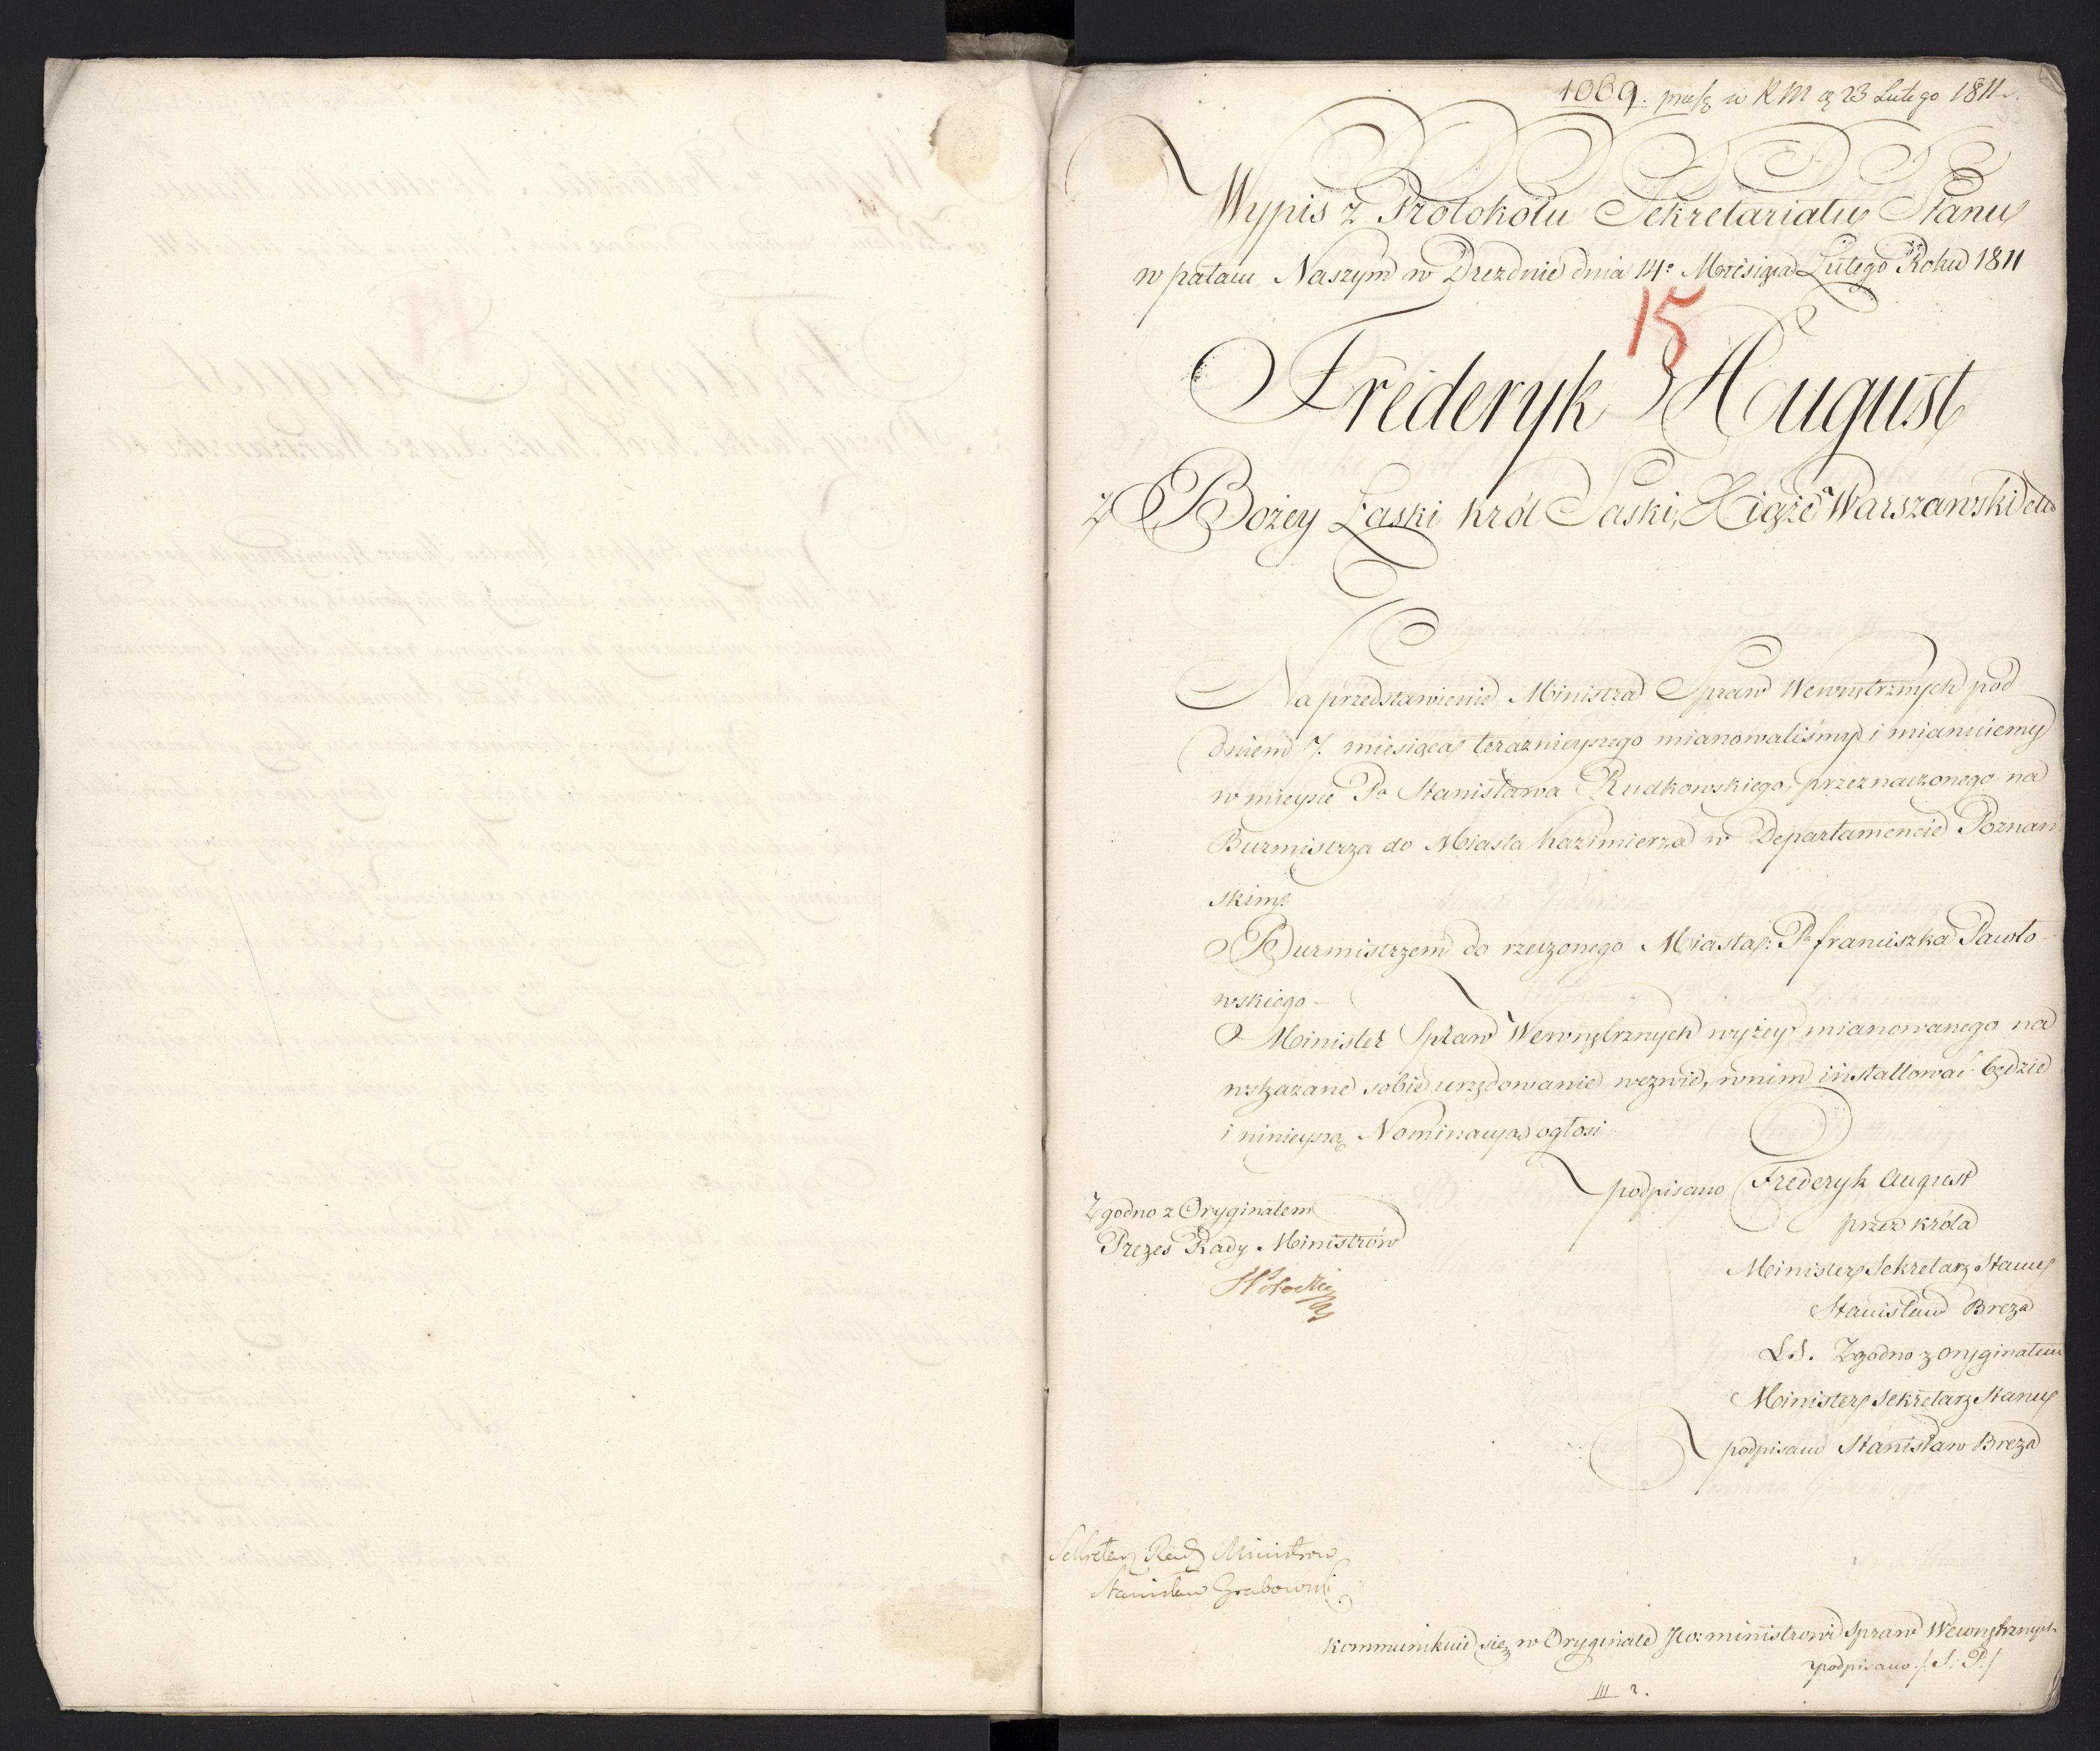 1069. w K M 23 Lutego 1811 r.
Wypis z Protokołu Sekretariatu Stanu
w pałacu Naszym w Dreznie dnia 14o Miesiąca Lutego Roku 1811
15
Frederyk August
z Bożey Łaski Król Saski, Xiąże Warszawski etc
Na przedstawienie Ministra Spraw Wewnętrznych pod
dniem 7. miesiąca teraznieyszego mianowaliśmy i mianuiemy
w mieysce Pa Stanisława Rudkowskiego, przeznaczonego na
Burmistrza do Miasta Kazimierza w Departamencie Poznań
skim
Burmistrzem do rzeczonego Miasta: Pa franciszka Pawło-
wskiego -
Minister Spraw Wewnętrznych wyżey mianowanego na
wskazane sobie urzędowanie wezwie, w nim installować będzie
i ninieyszą Nominacyą ogłosi
podpisano Frederyk August
przez króla
Minister Sekretarz Stanu
Stanisław Breza
L.S. Zgodno z oryginałem
Minister Sekretarz Stanu
podpisano Stanisław Breza
Zgodno z Oryginałem
Prezes Rady Ministrów
Sekretarz Rady Ministrow
Stanisław Grabowski
Kommunikuie się w Oryginale JW: ministrowi Spraw Wewnętrznych
podpisano /: S. P./